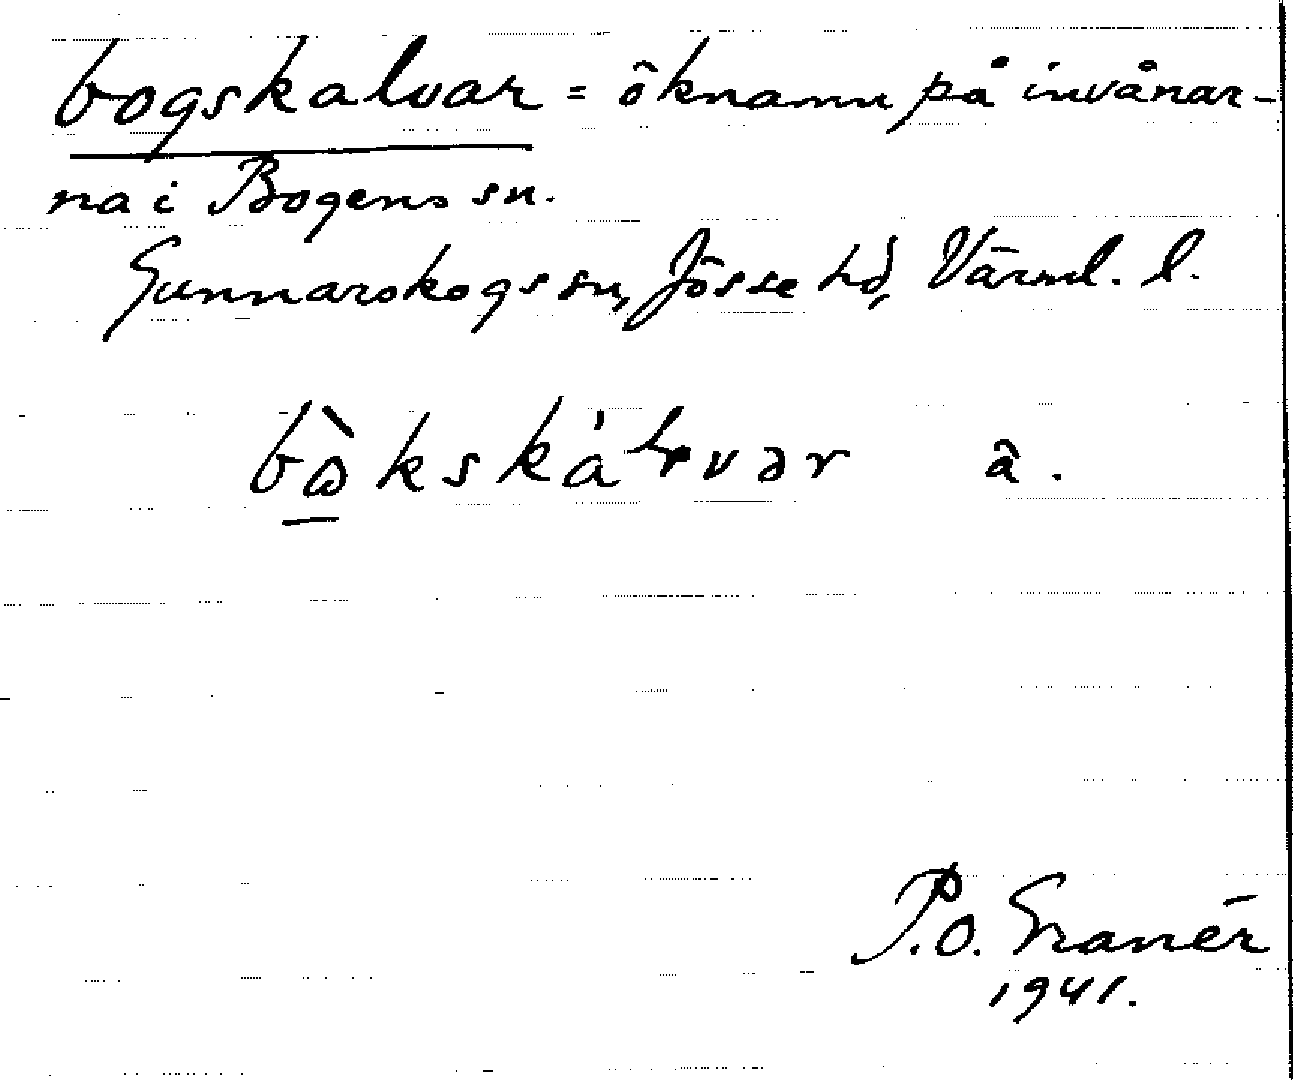 bogskalvar = öknamn på invånar-
na i Bogens sn.
Gunnarskogs sn, Jösse hd, Värml. l.
a.
P.O. Granér
1941.